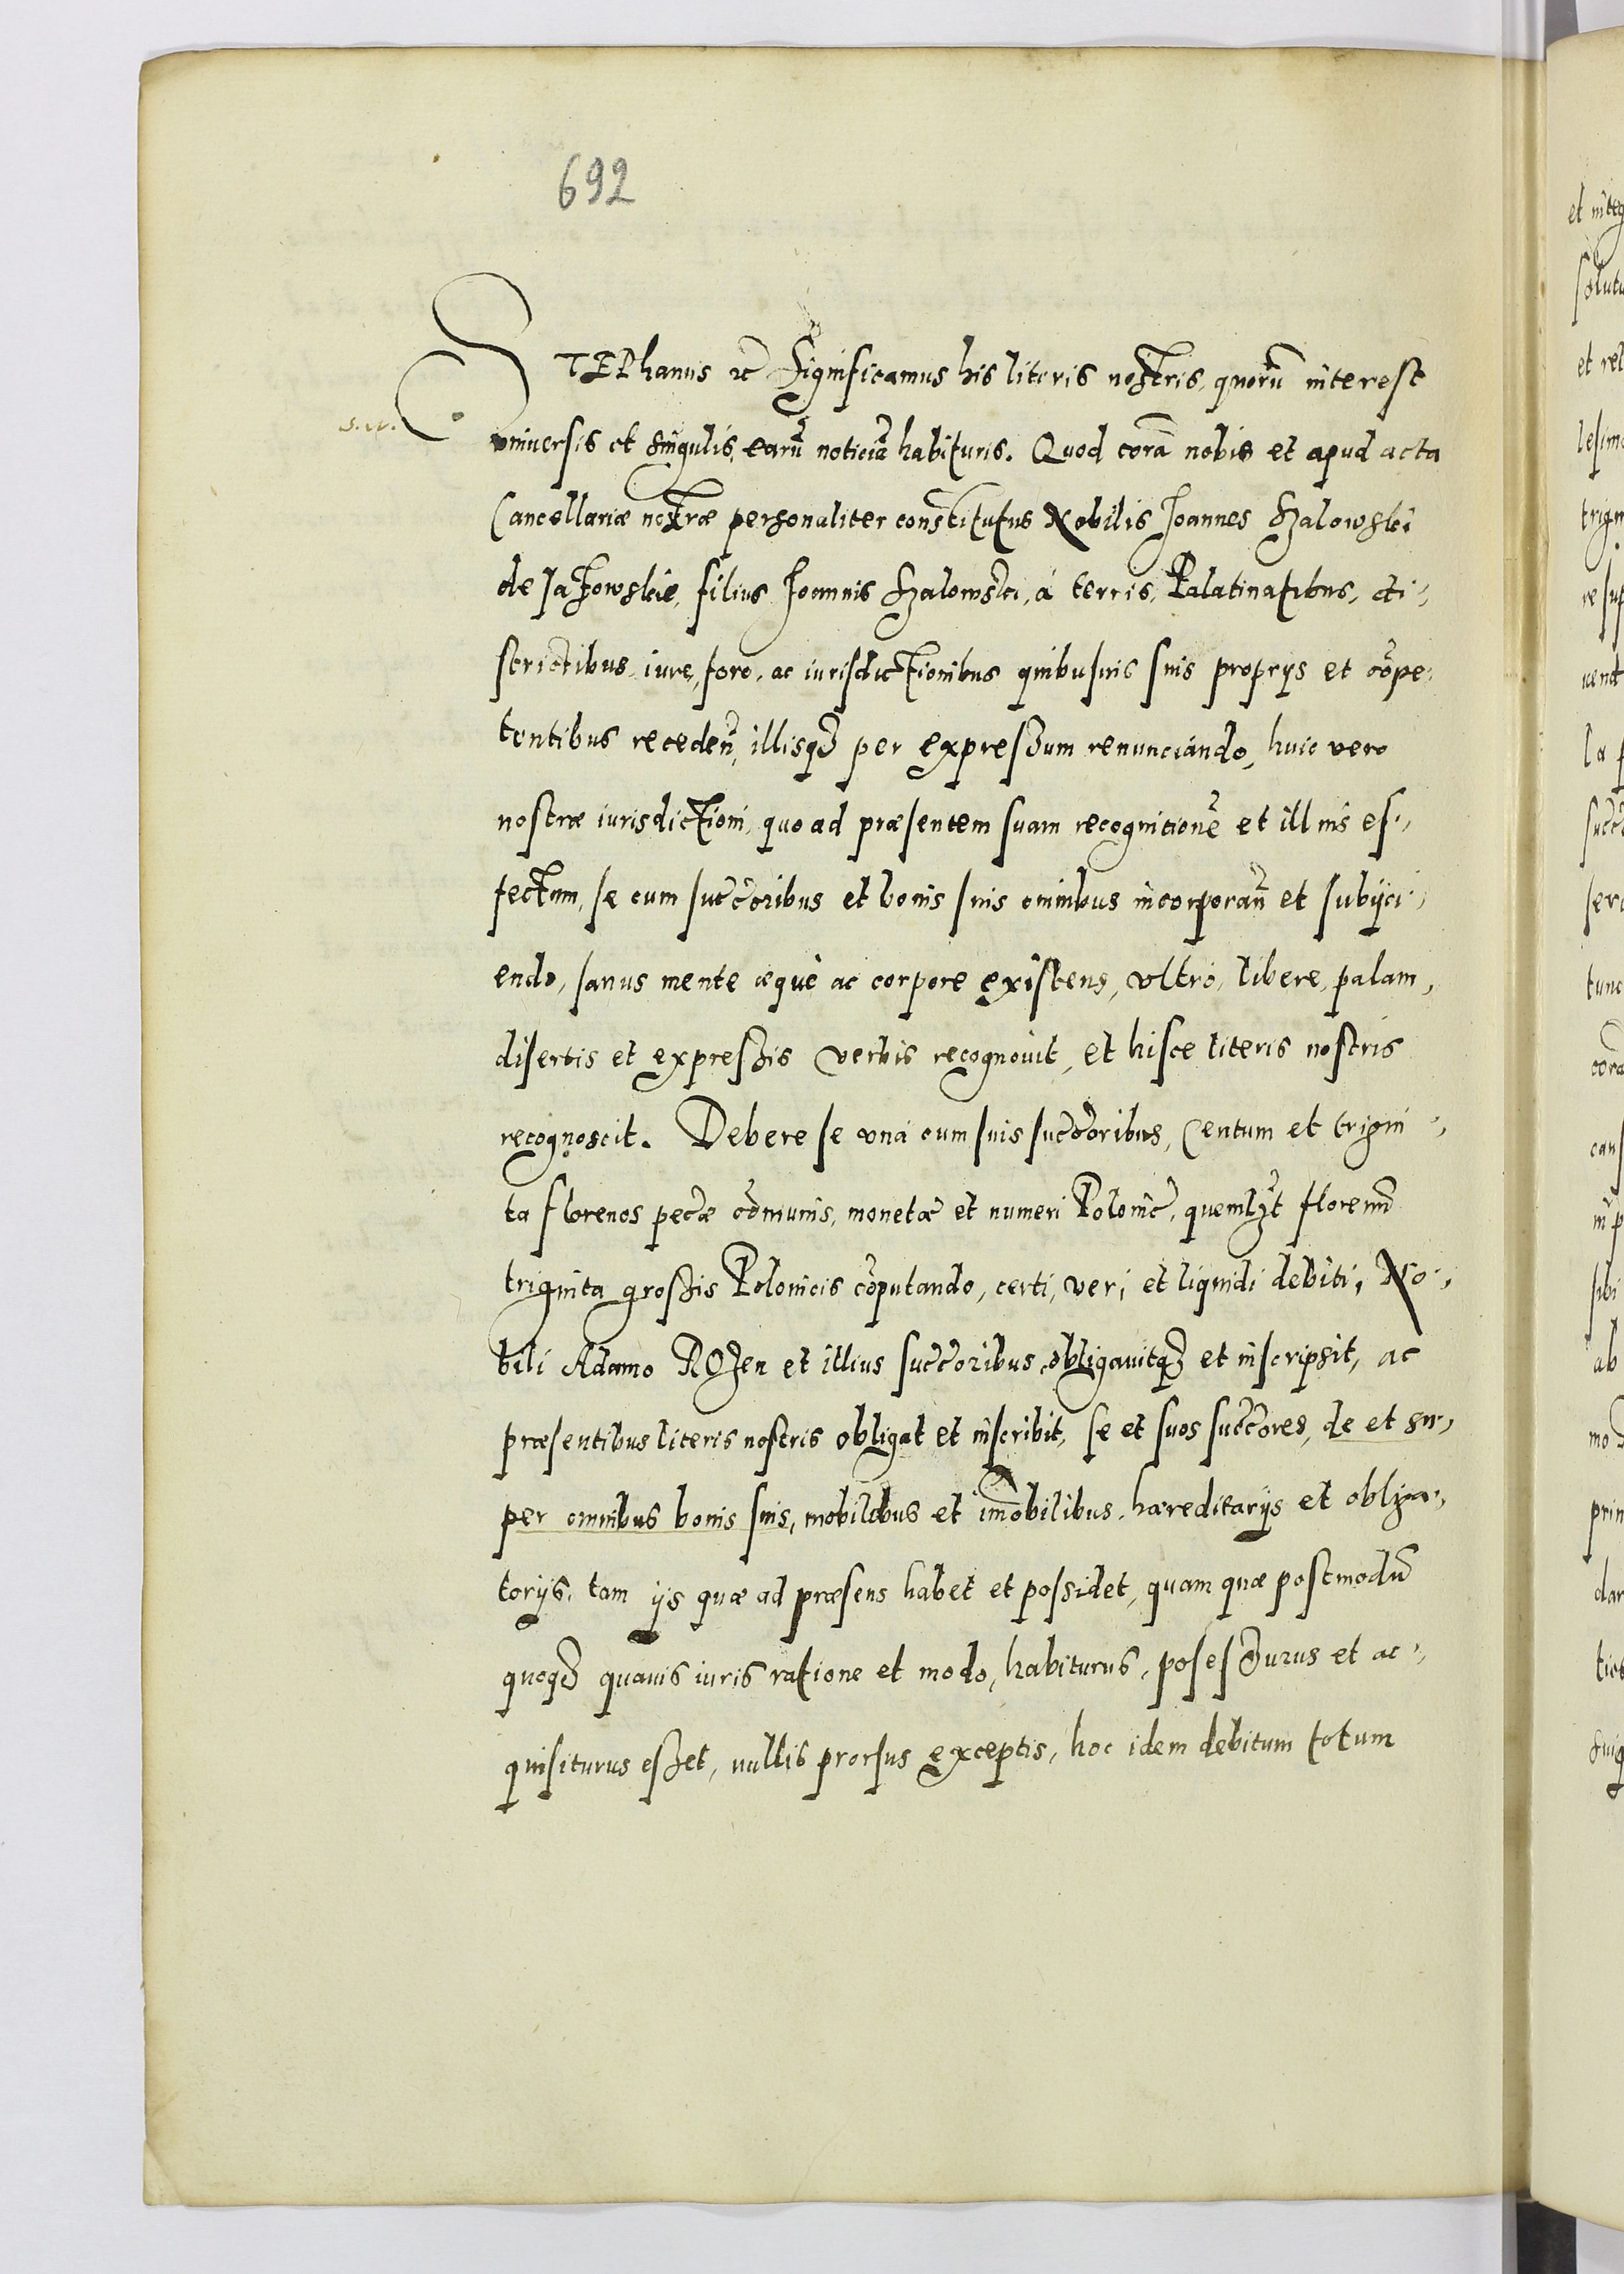 692
STEPhanus etc Significamus his literis nostris, quorū interest
s.w.
vniuersis et singulis, earū noticiā habituris. Quod corā nobis et apud acta
Cancellariæ nostræ personaliter constitutus Nobilis Joannes Szalowski
de Jatzowskie, filius Joannis Szalowski, á terris, Palatinatibus, di-
strictibus, iure, foro, ac iurisdictionibus quibusuis suis proprijs et cōpe-
tentibus recedeñ, illisqȝ per expressum renunciando, huic vero
nostræ iurisdictioni, quo ad præsentem suam recognitionē et illius ef-
fectum, se cum succ̄oribus et bonis suis omnibus incorporañ et subijci-
endo, sanus mente æquè ac corpore existens, vltrò, libere, palam,
disertis et expressis verbis recognouit, et hisce literis nostris
recognoscit. Debere se vná cum suis succ̄oribus, Centum et trigin-
ta florenos pec̄æ cōmunis, monetæ et numeri Polonic̄, quemlȝt florenū
triginta grossis Polonicis cōputando, certi, veri et liquidi debiti, No-
bili Adamo ROzen et illius succ̄oribus, obligauitqȝ et inscripsit, ac
præsentibus literis nostris obligat et inscribit, se et suos succ̄ores, de et su-
per omnibus bonis suis, mobilibus et im̄obilibus, hæreditarijs et obliga-
torijs, tam ijs quæ ad præsens habet et possidet, quam quæ postmodū
quoqȝ quauis iuris ratione et modo, habiturus, posessurus et ac-
quisiturus esset, nullis prorsus exceptis, hoc idem debitum totum